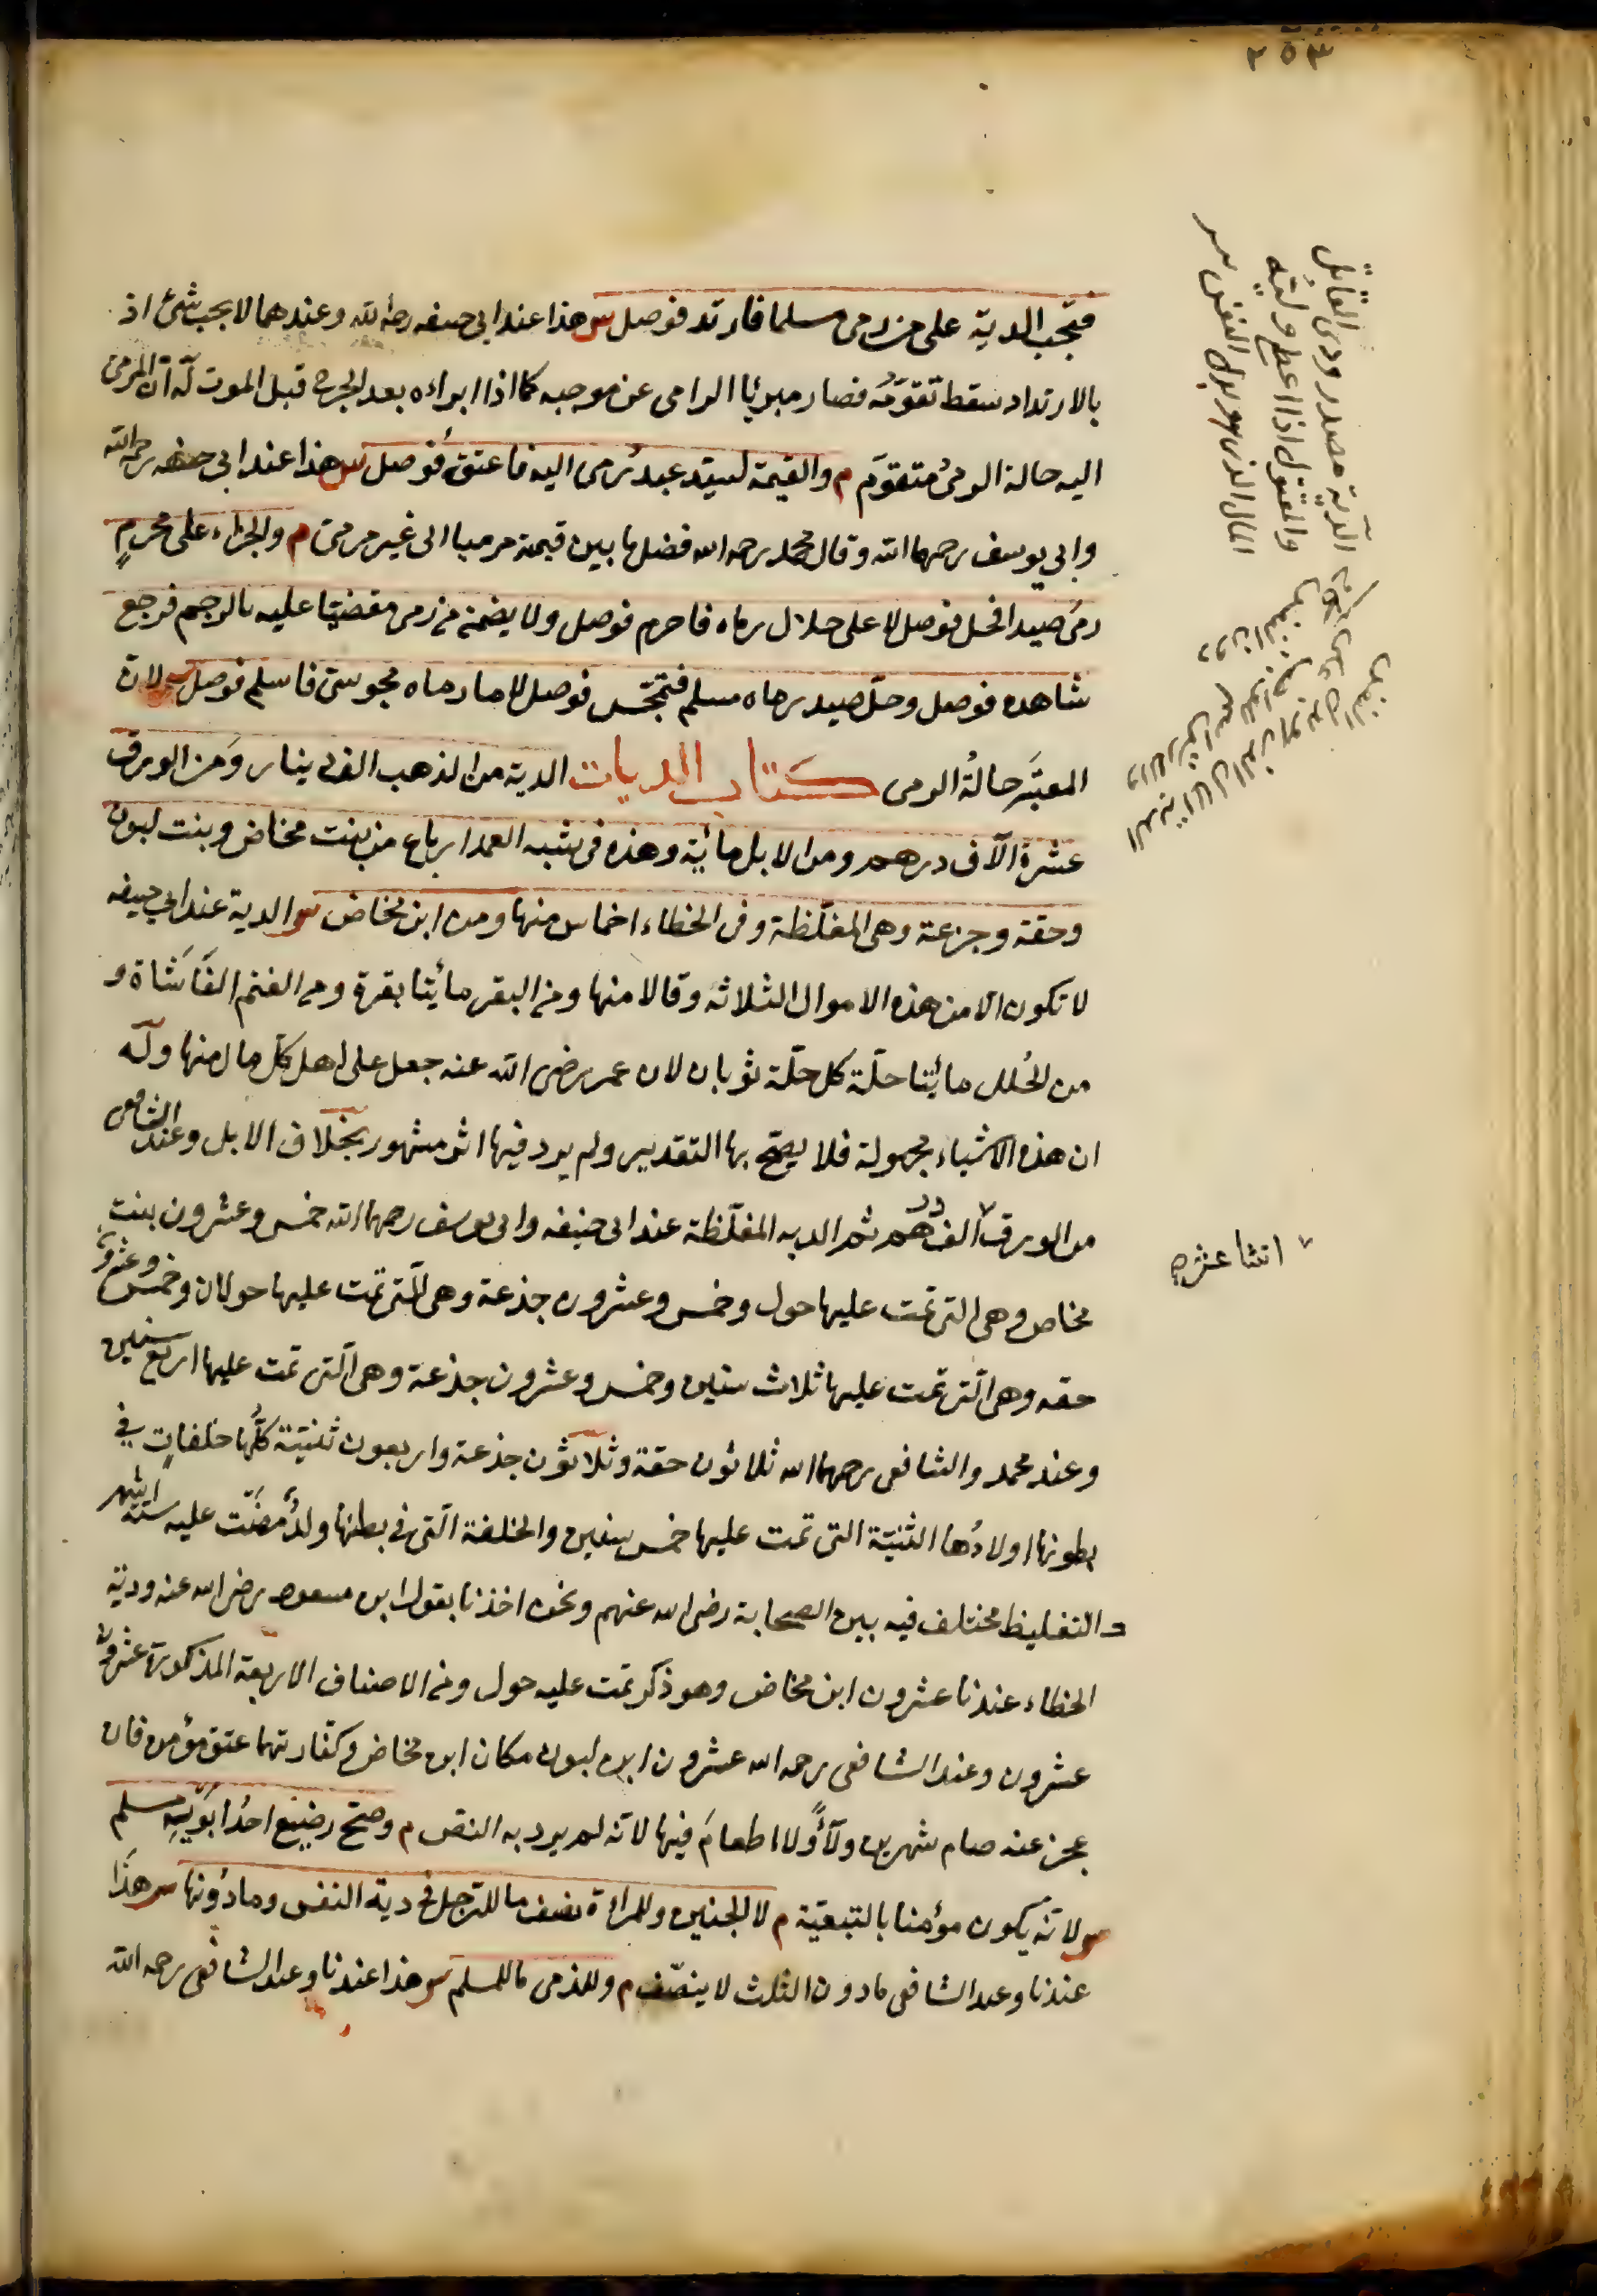 ٢٥٣
فتجب الدية على من رمى مسلما فارتد فوصل س هذا عند ابى حنيفه رحمه الله وعندهما لا يجب شئ اذ
بالارتداد سقط تقومه فصار مبريا الرامى عن موجبه كما اذا ابراءه بعد الجرح قبل الموت له ان المرمى
اليه حالة الرمى متقوم م والقيمة لسيد عبد رمى اليه فاعتق فوصل س هذا عند ابى حنيفه رحمه الله
وابى يوسف رحمهما الله وقال محمد رحمه الله فضل ما بين قيمته مرميا الى غير مرمى م والجزاء على محرم
رمى صيدا فحل فوصل لا على حلال رماه فاحرم فوصل ولا يضمن من رمى مقضيا عليه بالرجم فرجع
شاهده فوصل وحل صيد رماه مسلم فتمجس فوصل لا ما رماه مجوسى فاسلم فوصل س لان
المعتبر حالة الرمى كتاب الديات الدية من الذهب الف دينار ومن الورق
عشرة الآف درهم ومن الابل مائة وهذه فى شبه العمد ارباع من بنت مخاض وبنت لبون
وحقة وجزعة وهى المغلظة وفى الخطاء اخماس منها ومن ابن مخاض س الدية عند ابى حنيفه
لا تكون الا من هذه الاموال الثلاثة وقالا منها ومن البقر مائتا بقرة ومن الغنم الفا شاة و
من الحلل مائتا حلة كل حلة ثوبان لان عمر رضى الله عنه جعل على اهل كل مال منها وله
ان هذه الاشياء مجهولة فلا يصح بها التقدير ولم يرد فيها اثر مشهور بخلاف الابل وعند الشافعى
من الورق الف درهم ثم الديه المغلظة عند ابى حنيفه وابى يوسف رحمهما الله خمس وعشرون بنت
مخاض وهى التى تمت عليها حول وخمس وعشرون جذعة وهى التى تمت عليها حولان وخمس وعشرون
حقه وهى التى تمت عليها ثلاث سنين وخمس وعشرون جذعة وهى التى تمت عليها اربع سنين
وعند محمد والشافعى رحمهما الله ثلاثون حقة وثلاثون جذعة واربعون ثنية كلها خلفات في
بطونها اولادها الثنية التى تمت عليها خمس سنين والخلفة التى فى بطنها ولد مضت عليه ستة اشهر
والتغليظ مختلف فيه بين الصحابة رضى الله عنهم ونحن اخذنا بقول ابن مسعود رضى الله عنه ودية
الخطاء عندنا عشرون ابن مخاض وهو ذكر تمت عليه حول ومن الاصناف الاربعة المذكورة عشرون
عشرون وعند الشافعى رحمه الله عشرون ابن لبون مكان ابن مخاض وكفارتهما عتق مؤمن فان
عجز عنه صام شهرين ولاء ولا اطعام فيها لانه لم يرد به النص م وصح رضيع احد ابويه مسلم
س لانه يكون مؤمنا بالتبعية م لا الجنين وللمراءة نصف ما للرجل فى دية النفس وما دونها س هذا
عندنا وعند الشافعى ما دون الثلث لا ينصف م وللذمى ما للمسلم س هذا عندنا وعند الشافعى رحمه الله
الدية مصدر ودى القاتل
والمقتول اذا اعطى وليه
المال الذى هو بدل النفس
اثنا عشر